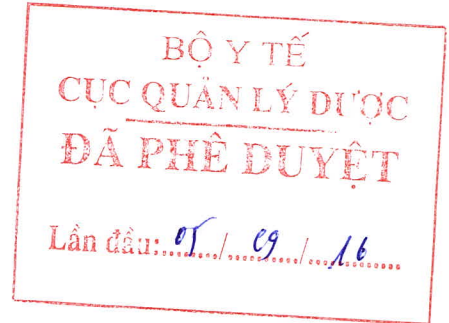 BỘ Y TẾ
CỤC QUẢN LÝ DƯỢC
ĐÃ PHÊ DUYỆT
Lần đầu: 05 / 09 / 16